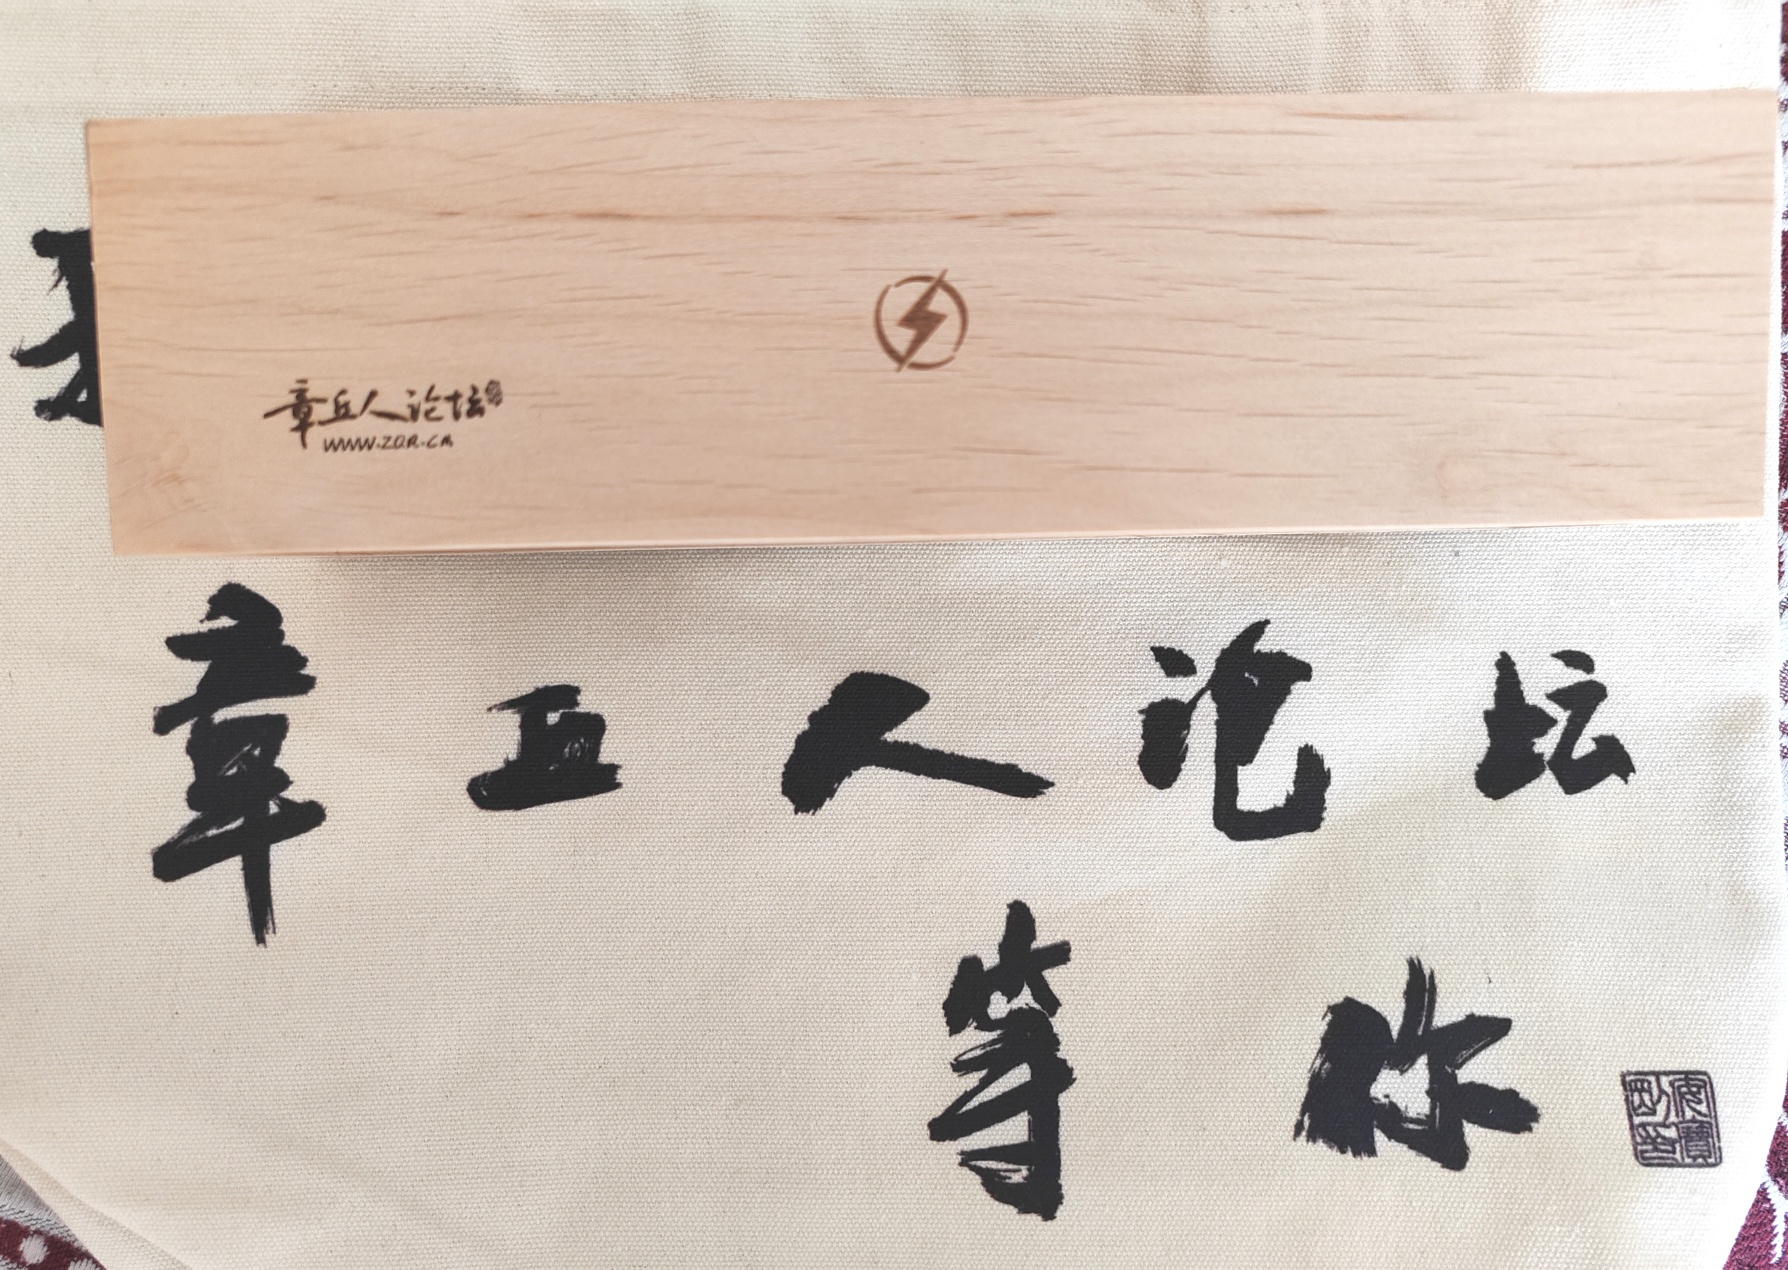 章丘人论坛
WWW.ZQR.CN
章丘人论坛
等你